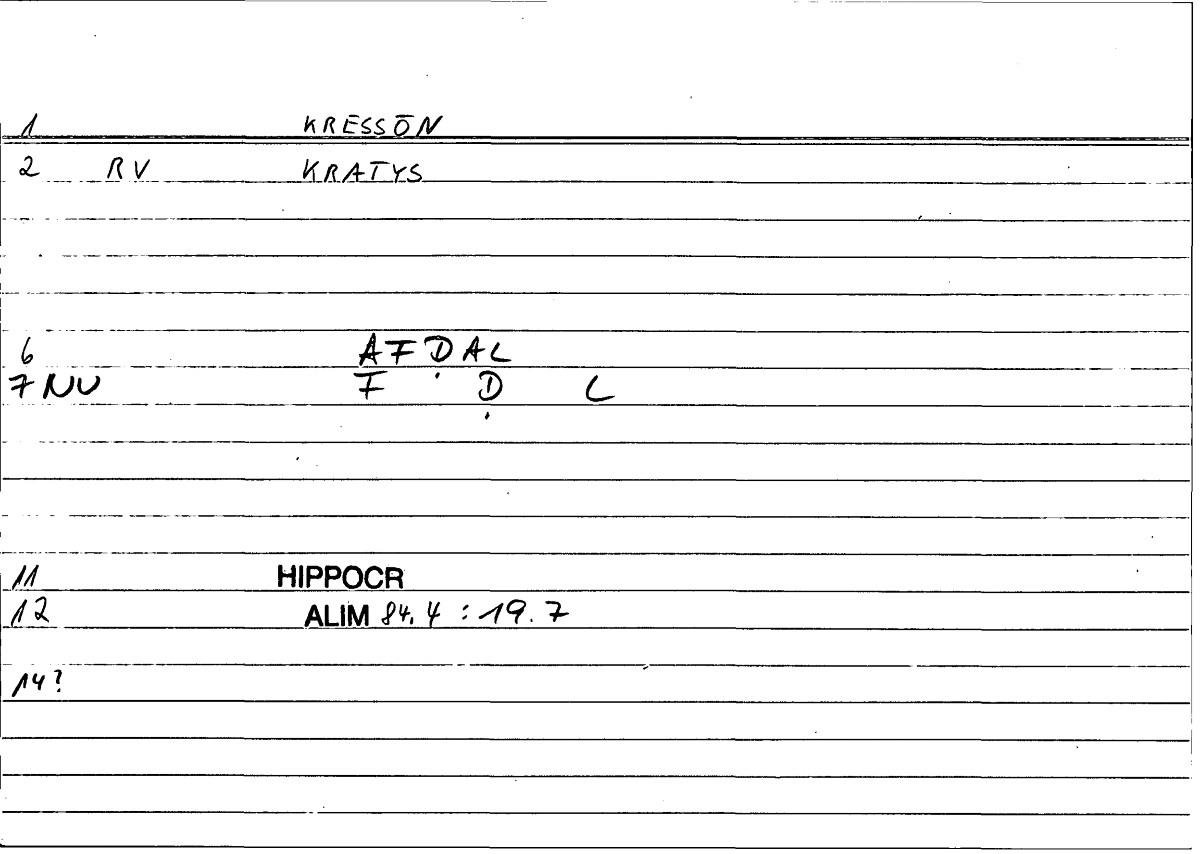 1 KRESSŌN
2 RV KRATYS
6 AFḌAL
7 NV F Ḍ L
11 HIPPOCR
12 ALIM 84.4 : 19.7
14?